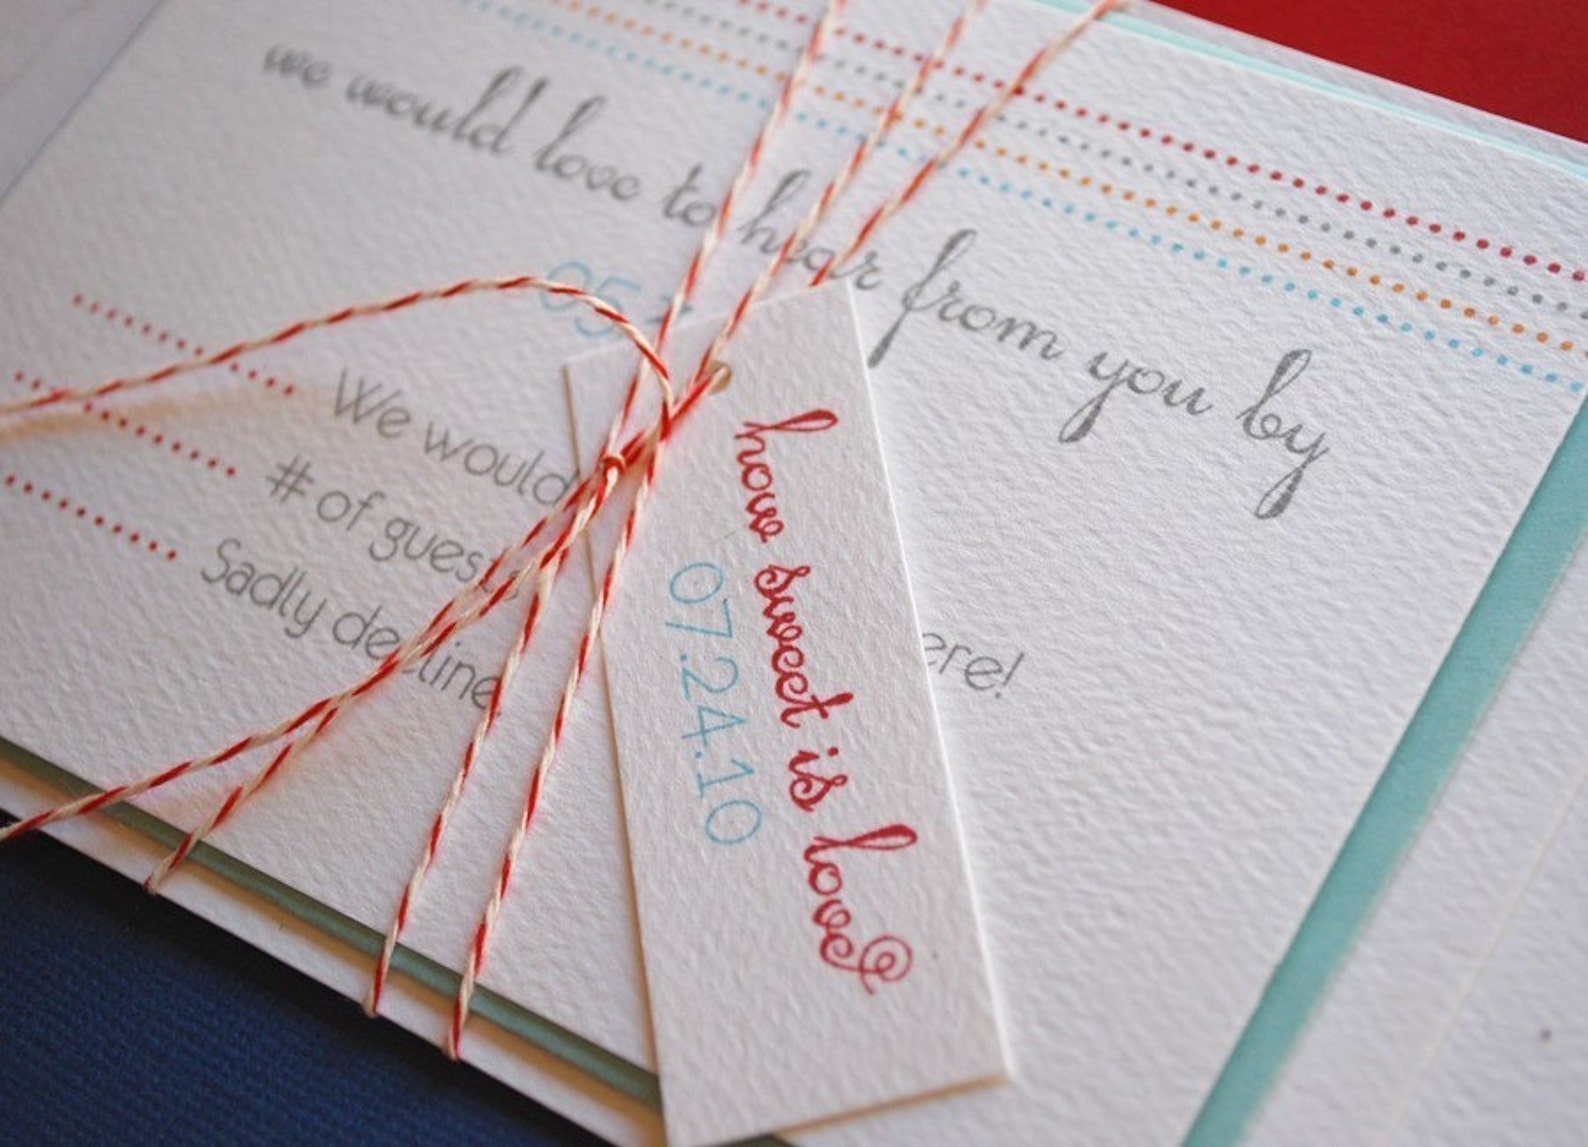 we would love to hear from you by
05.
We would
ere!
# of guests
Sadly decline
how sweet is love
07.24.10